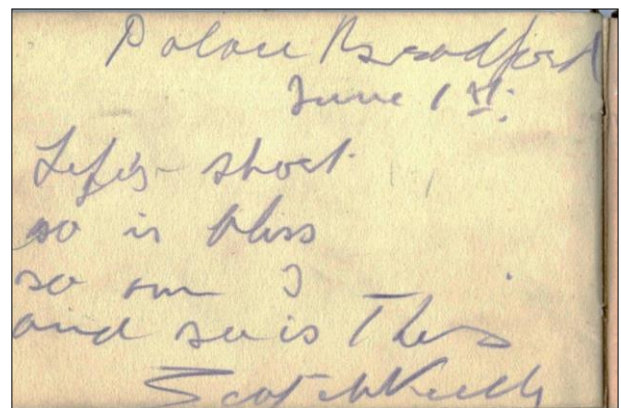 Palace Bradford
June 1st.
Life's short
so is bliss
so am I
and so is This
Scotch Kelly